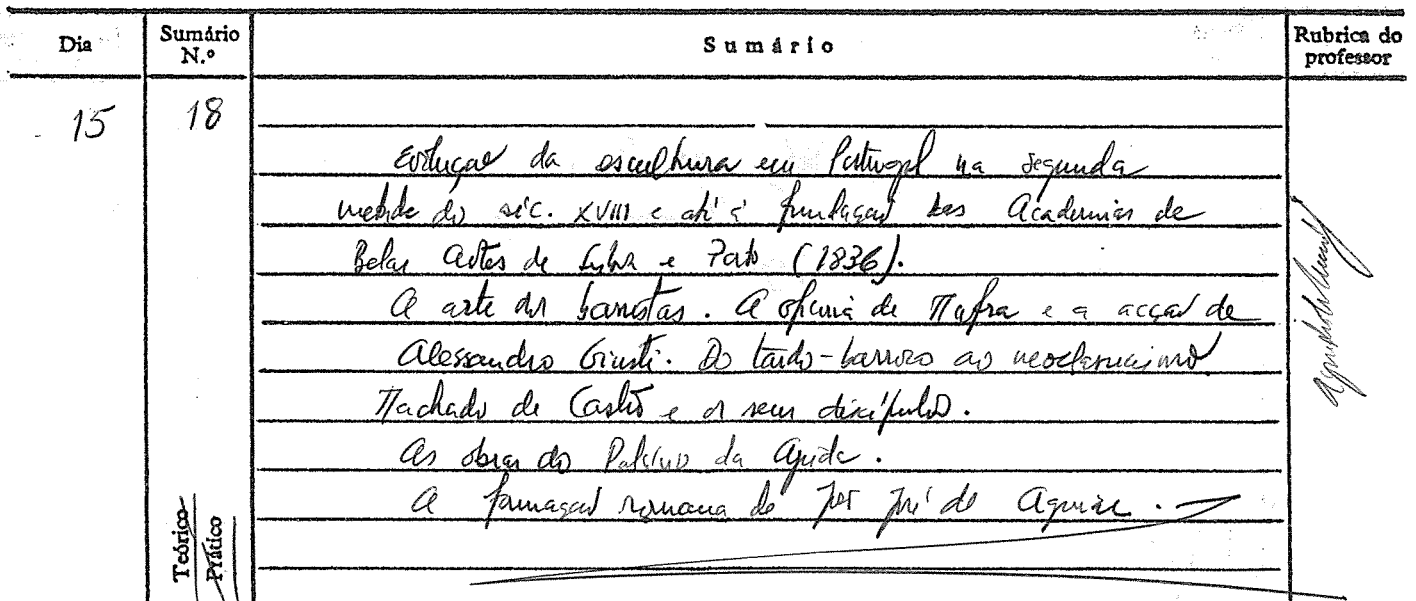 Dia
Sumário N.º
Sumário
Rubrica do professor
15
18
Evolução da escultura em Portugal na segunda
metade do séc. XVIII e até à fundação das Academias de
Belas Artes de Lisboa e Porto (1836).
A arte dos barristas. A oficina de Mafra e a acção de
Alessandro Giusti. Do tardo-barroco ao neoclassicismo
Machado de Castro e os seus discípulos.
As obras do Palácio da Ajuda.
A formação romana de José de Aguiar.
Teórico
Prático